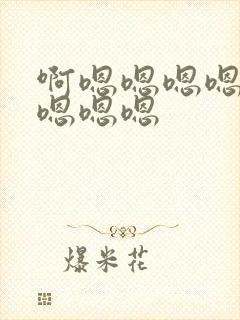 啊嗯嗯嗯嗯
嗯嗯嗯
爆米花